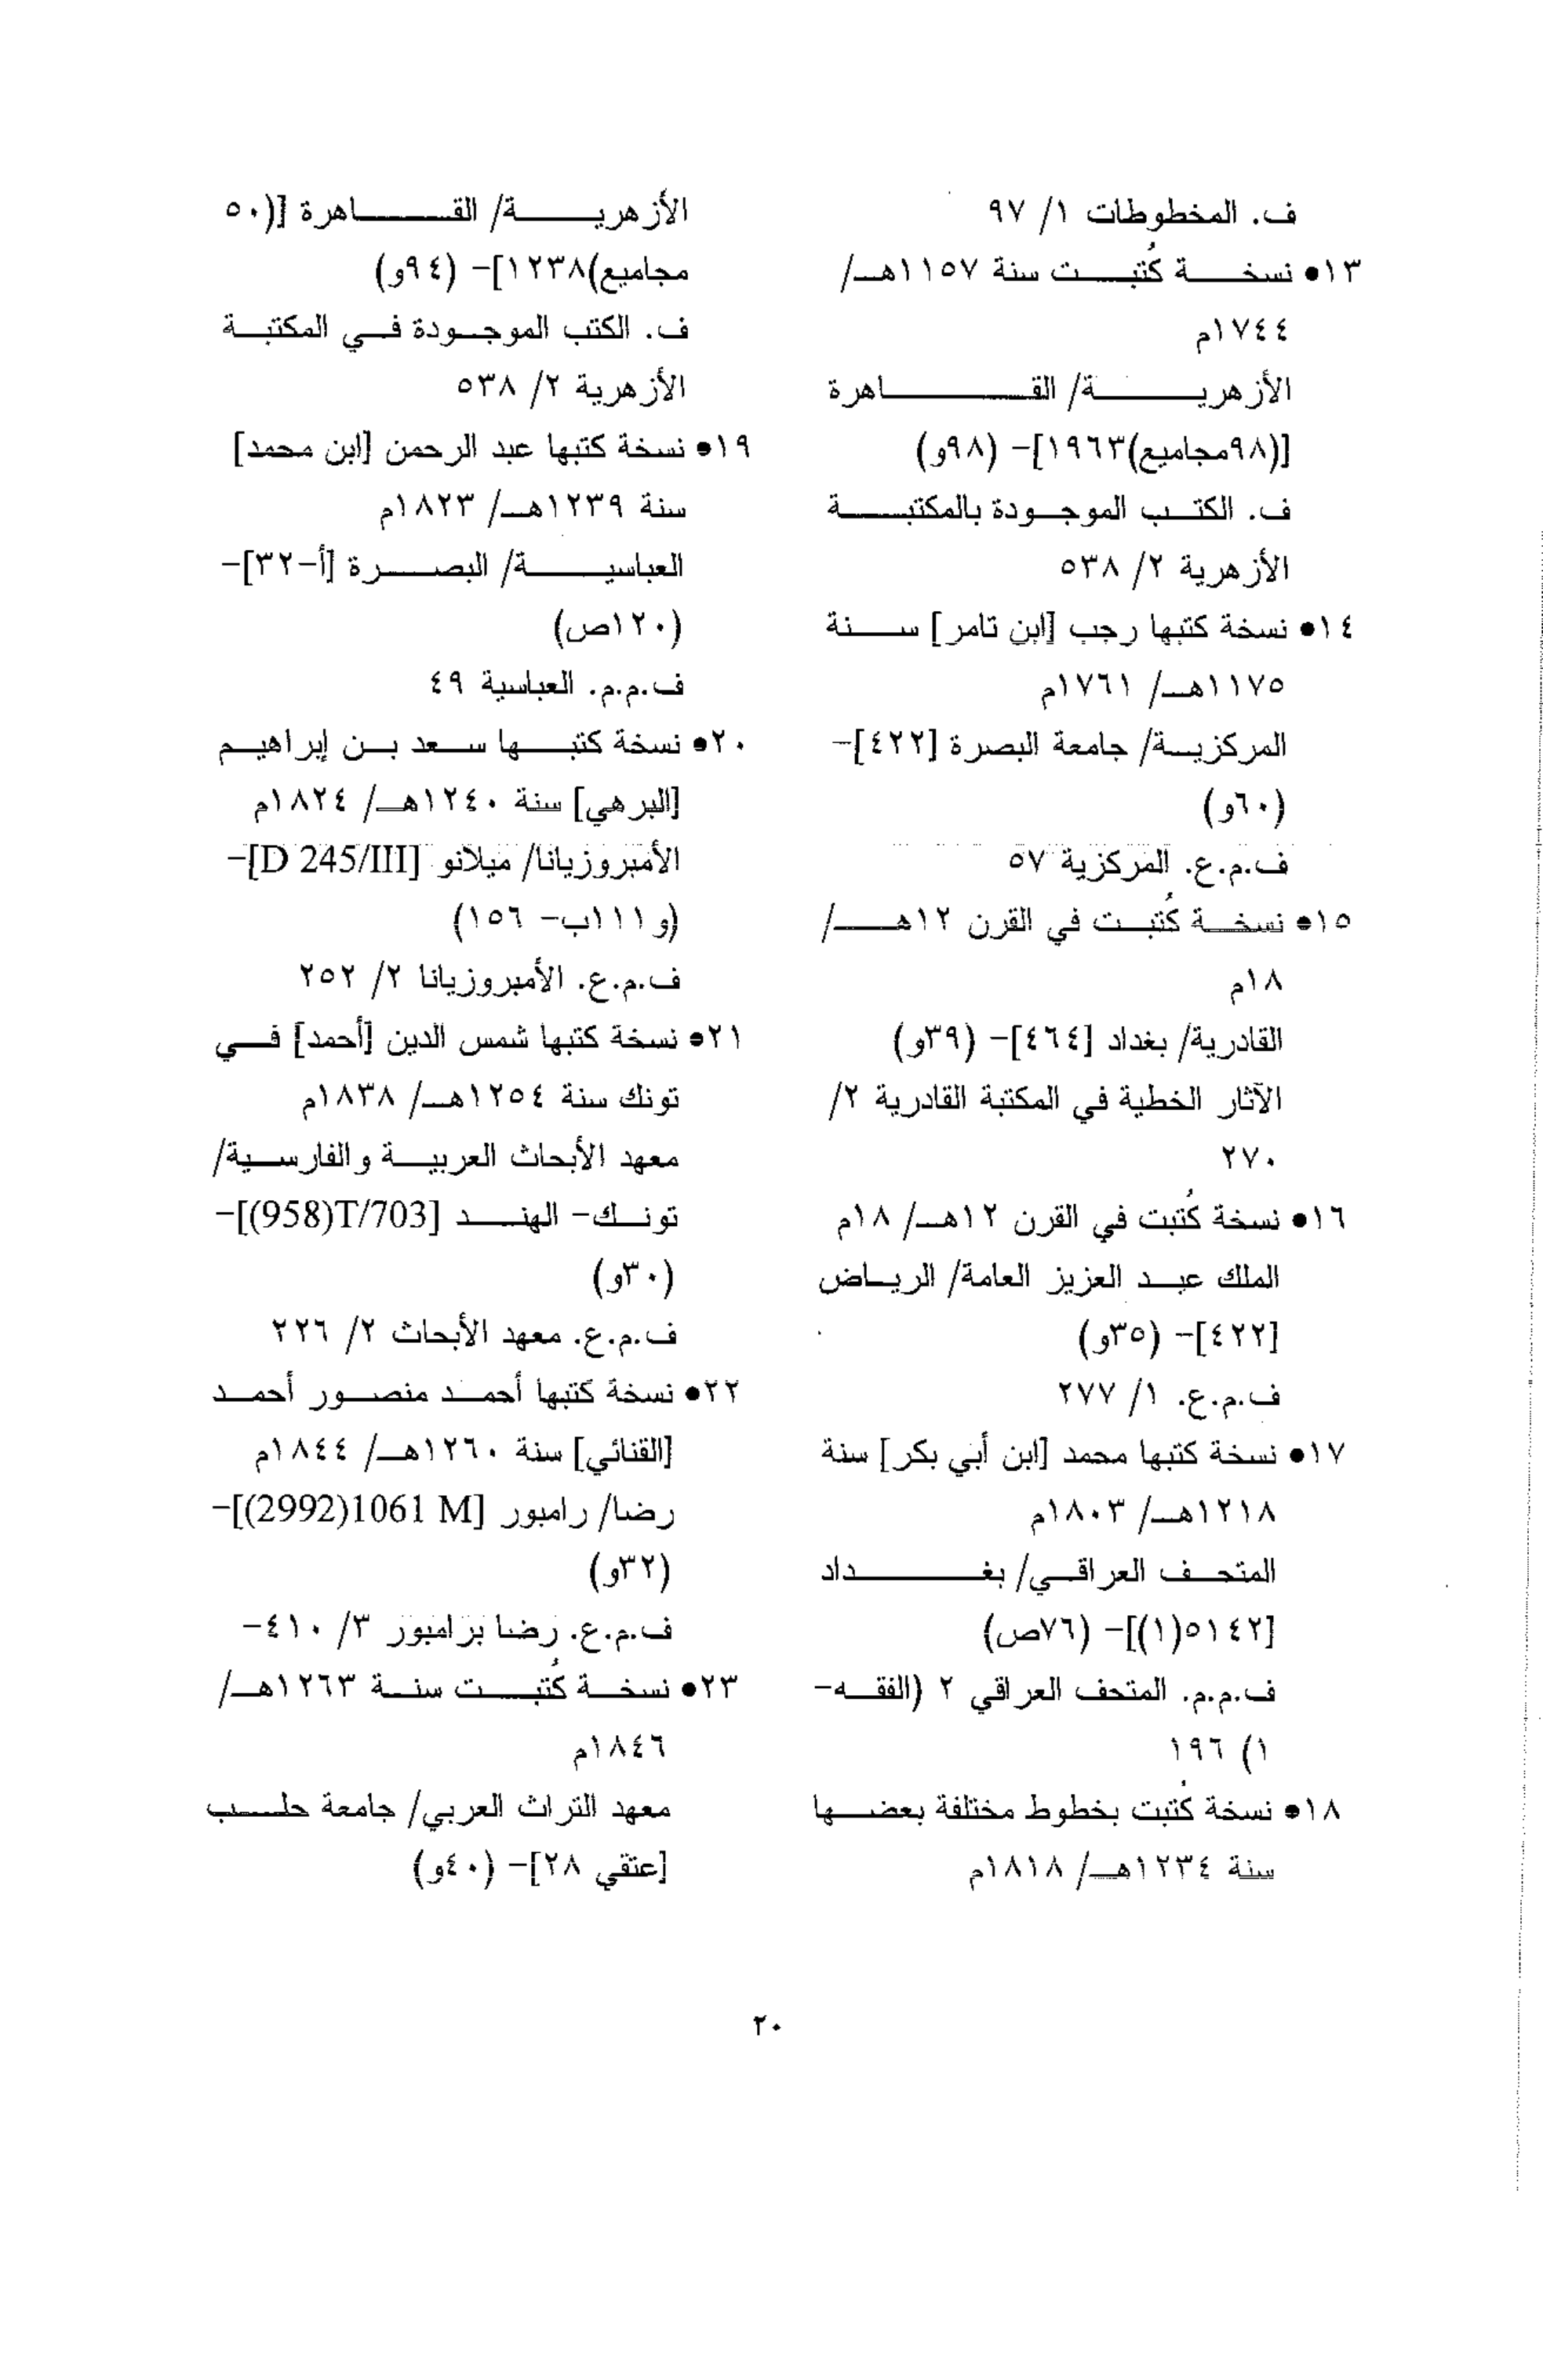 ف. المخطوطات ١/ ٩٧
١٣• نسخة كُتبت سنة ١١٥٧هـ/
١٧٤٤م
الأزهرية/ القاهرة
[(٩٨مجاميع)١٩٦٣]- (٩٨و)
ف. الكتب الموجودة بالمكتبة
الأزهرية ٢/ ٥٣٨
١٤• نسخة كتبها رجب [ابن تامر] سنة
١١٧٥هـ/ ١٧٦١م
المركزية/ جامعة البصرة [٤٢٢]-
(٦٠و)
ف.م.ع. المركزية ٥٧
١٥• نسخة كُتبت في القرن ١٢هـ/
١٨م
القادرية/ بغداد [٤٦٤]- (٣٩و)
الآثار الخطية في المكتبة القادرية ٢/
٢٧٠
١٦• نسخة كُتبت في القرن ١٢هـ/ ١٨م
الملك عبد العزيز العامة/ الرياض
[٤٢٢]- (٣٥و)
ف.م.ع. ١/ ٢٧٧
١٧• نسخة كتبها محمد [ابن أبي بكر] سنة
١٢١٨هـ/ ١٨٠٣م
المتحف العراقي/ بغداد
[٥١٤٢(١)]- (٧٦ص)
ف.م.م. المتحف العراقي ٢ (الفقه-
١) ١٩٦
١٨• نسخة كُتبت بخطوط مختلفة بعضها
سنة ١٢٣٤هـ/ ١٨١٨م
الأزهرية/ القاهرة [(٥٠
مجاميع)١٢٣٨]- (٩٤و)
ف. الكتب الموجودة في المكتبة
الأزهرية ٢/ ٥٣٨
١٩• نسخة كتبها عبد الرحمن [ابن محمد]
سنة ١٢٣٩هـ/ ١٨٢٣م
العباسية/ البصرة [أ-٣٢]-
(١٢٠ص)
ف.م.م. العباسية ٤٩
٢٠• نسخة كتبها سعد بن إبراهيم
[البرهي] سنة ١٢٤٠هـ/ ١٨٢٤م
الأمبروزيانا/ ميلانو [D 245/III]-
(و١١١ب- ١٥٦)
ف.م.ع. الأمبروزيانا ٢/ ٢٥٢
٢١• نسخة كتبها شمس الدين [أحمد] في
تونك سنة ١٢٥٤هـ/ ١٨٣٨م
معهد الأبحاث العربية والفارسية/
تونك- الهند [T/703(958)]-
(٣٠و)
ف.م.ع. معهد الأبحاث ٢/ ٢٢٦
٢٢• نسخة كتبها أحمد منصور أحمد
[القنائي] سنة ١٢٦٠هـ/ ١٨٤٤م
رضا/ رامبور [1061 M(2992)]-
(٣٢و)
ف.م.ع. رضا برامبور ٣/ ٤١٠-
٢٣• نسخة كُتبت سنة ١٢٦٣هـ/
١٨٤٦م
معهد التراث العربي/ جامعة حلب
[عتقي ٢٨]- (٤٠و)
٢٠